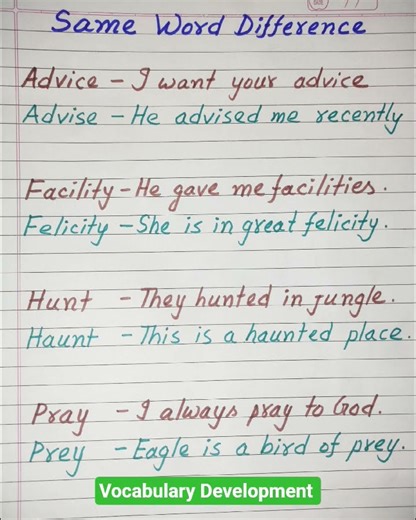 Same Word Difference
Advice - I want your advice
Advise - He advised me recently
Facility - He gave me facilities.
Felicity - She is in great felicity.
Hunt - They hunted in jungle.
Haunt - This is a haunted place.
Pray - I always pray to God.
Prey - Eagle is a bird of prey.
Vocabulary Development